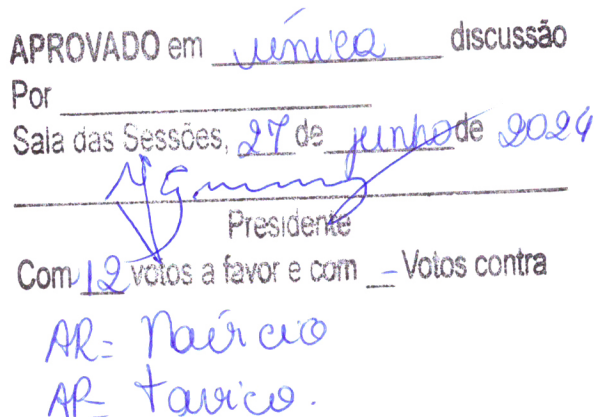 APROVADO em única discussão
Por
Sala das Sessões, 27 de junho de 2024
Presidente
Com 12 votos a favor e com - Votos contra
AR= Maércio
AR- Tavico.